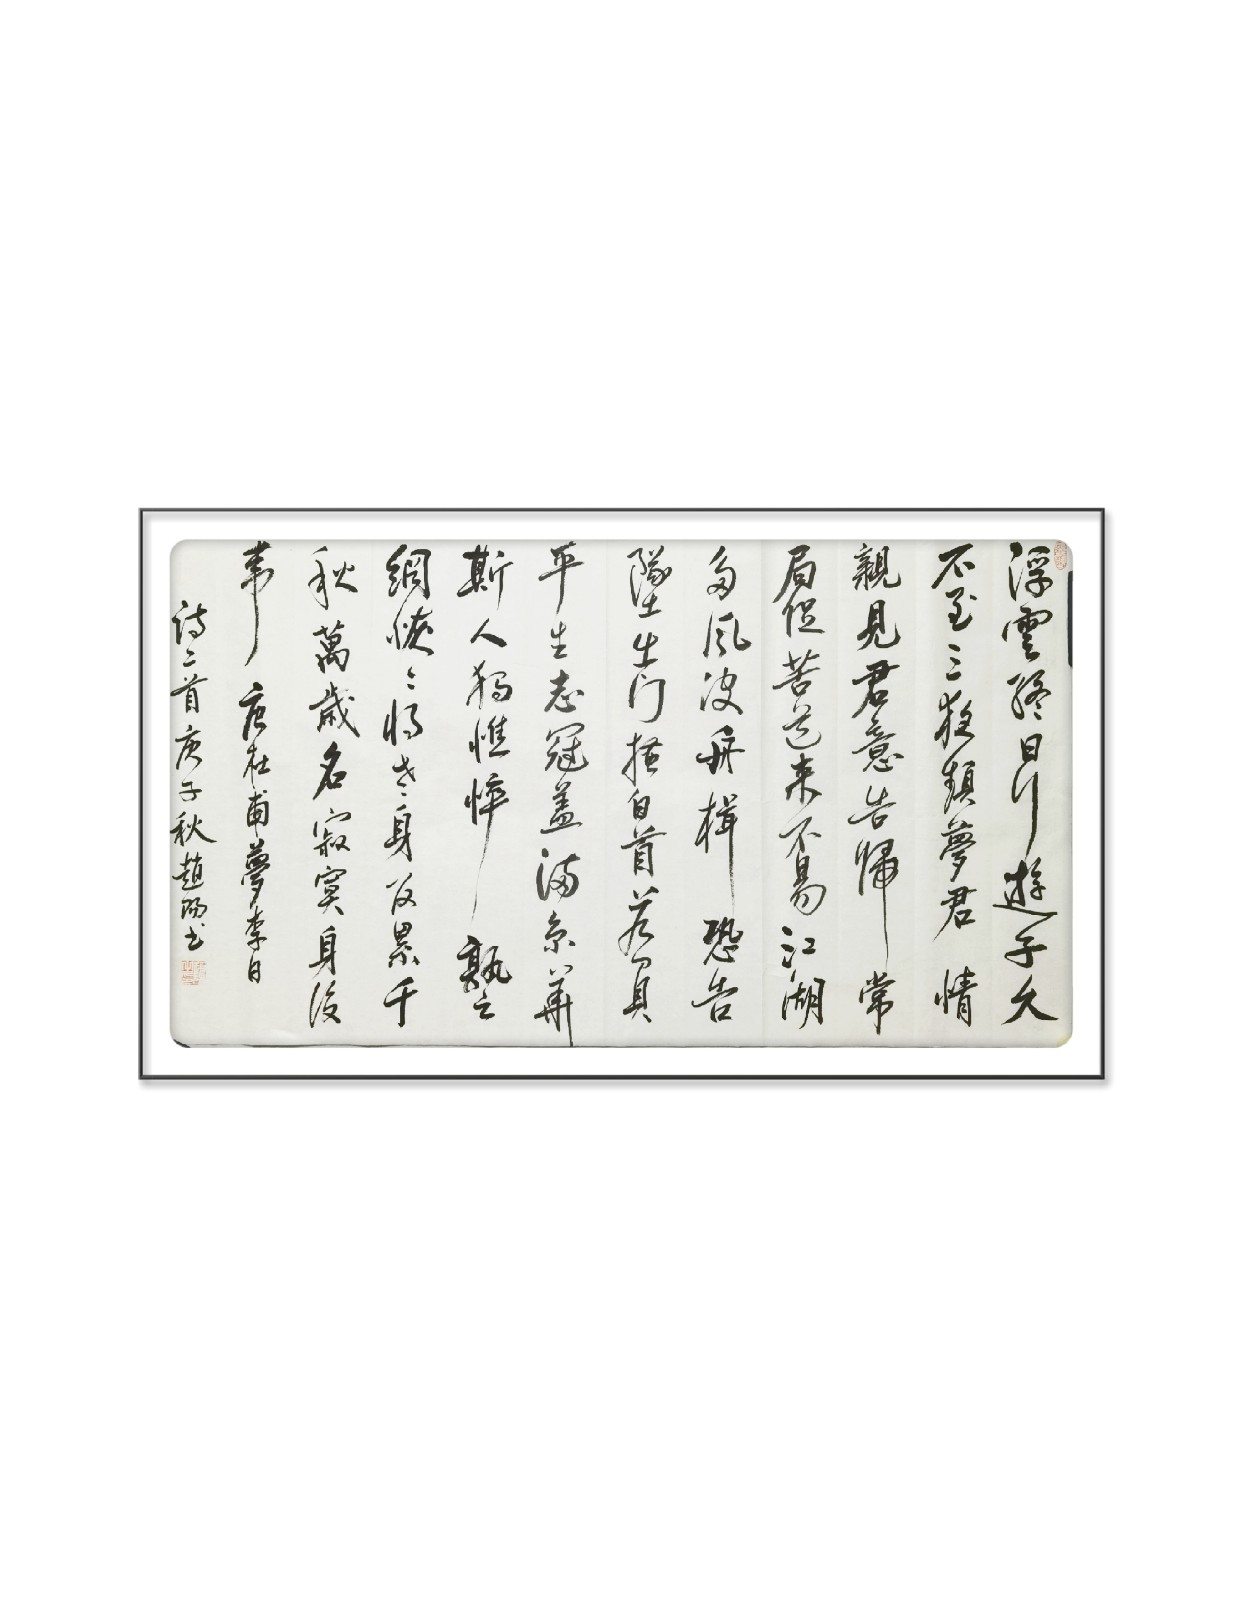 浮雲終日行遊子久
不至三夜頻夢君情
親見君意告歸常
局促苦道来不易江湖
多風波舟楫恐告
墜出门搔白首若負
平生志冠盖满京華
斯人獨憔悴孰云
網恢々将老身反累千
秋萬歲名寂寞身後
事 唐杜甫夢李白
诗二首庚子秋趙陽书